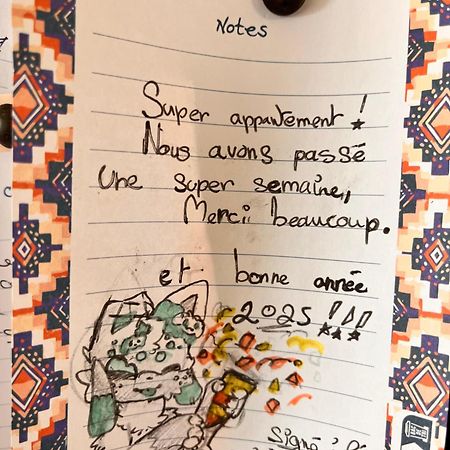 Notes
Super appartement !
Nous avons passé
Une super semaine,
Merci beaucoup.
et bonne année
2025 !!!
Signé :